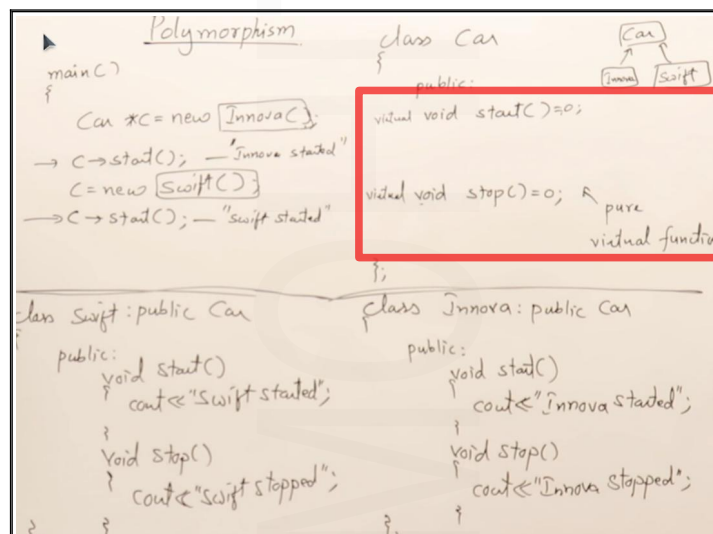 Polymorphism
main()
{
Car *C = new Innova();
→ C→start(); — "Innova started"
C = new Swift();
→ C→start(); — "Swift started"
class Car
{
public:
virtual void start()=0;
virtual void stop()=0; ↖ pure
virtual functio
};
Car
Innova Swift
class Swift : public Car
{
public:
void start()
{
cout<<"Swift started";
}
void stop()
{
cout<<"Swift stopped";
}
}
class Innova : public Car
{
public:
void start()
{
cout<<"Innova started";
}
void stop()
{
cout<<"Innova stopped";
}
};